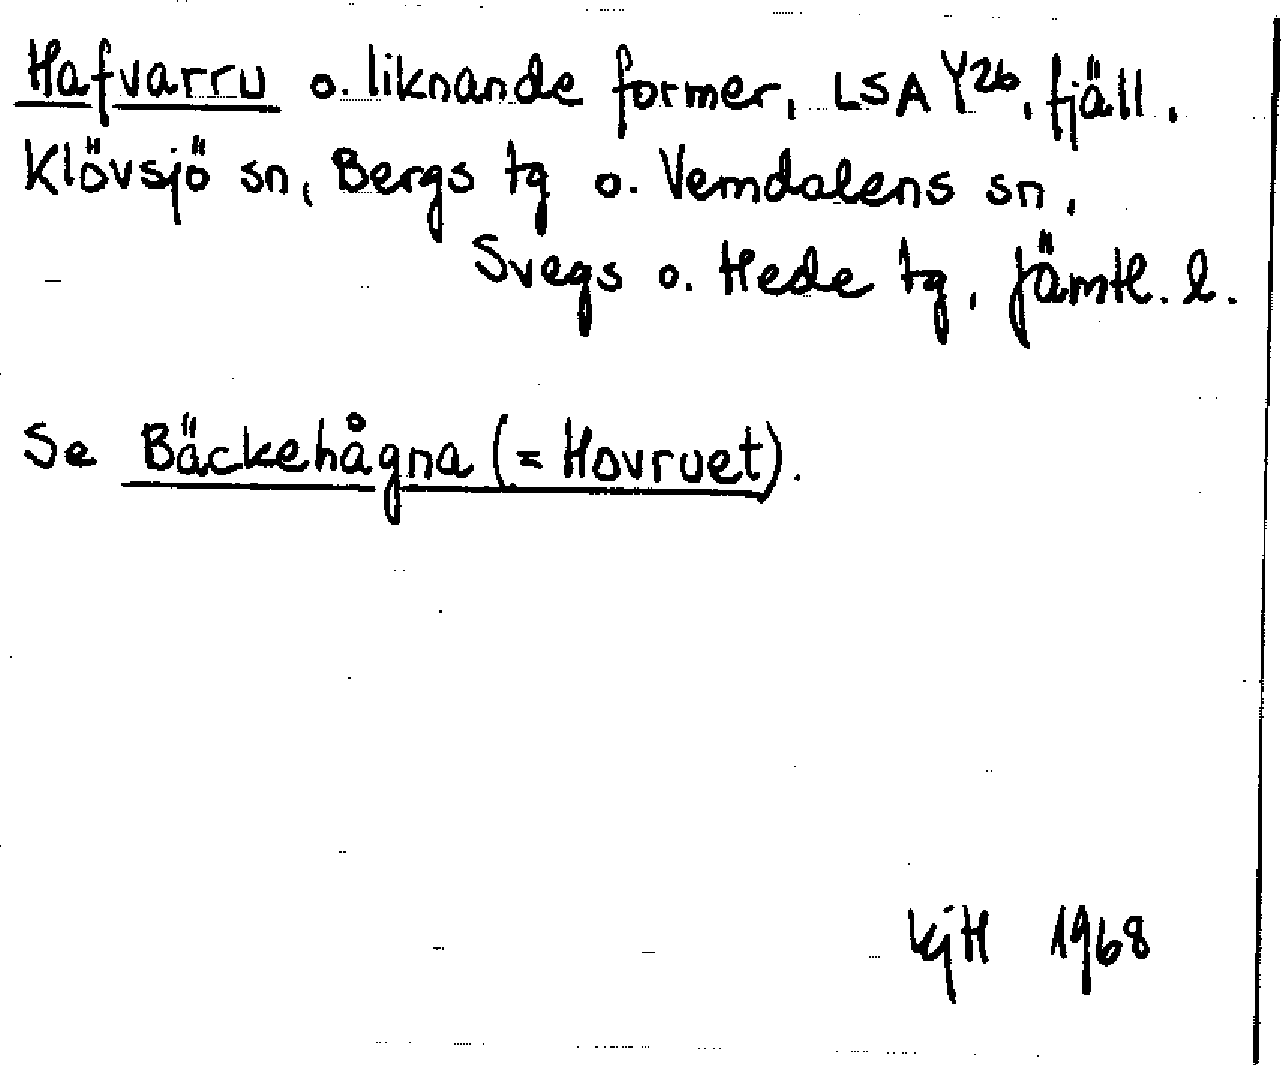 Hafvarru o. liknande former, LSA Y26, fjäll,
Klövsjö sn, Bergs tg o. Vemdalens sn,
Svegs o. Hede tg, Jämtl. l.
Se Bäckehågna (= Hovruet).
KjH 1968